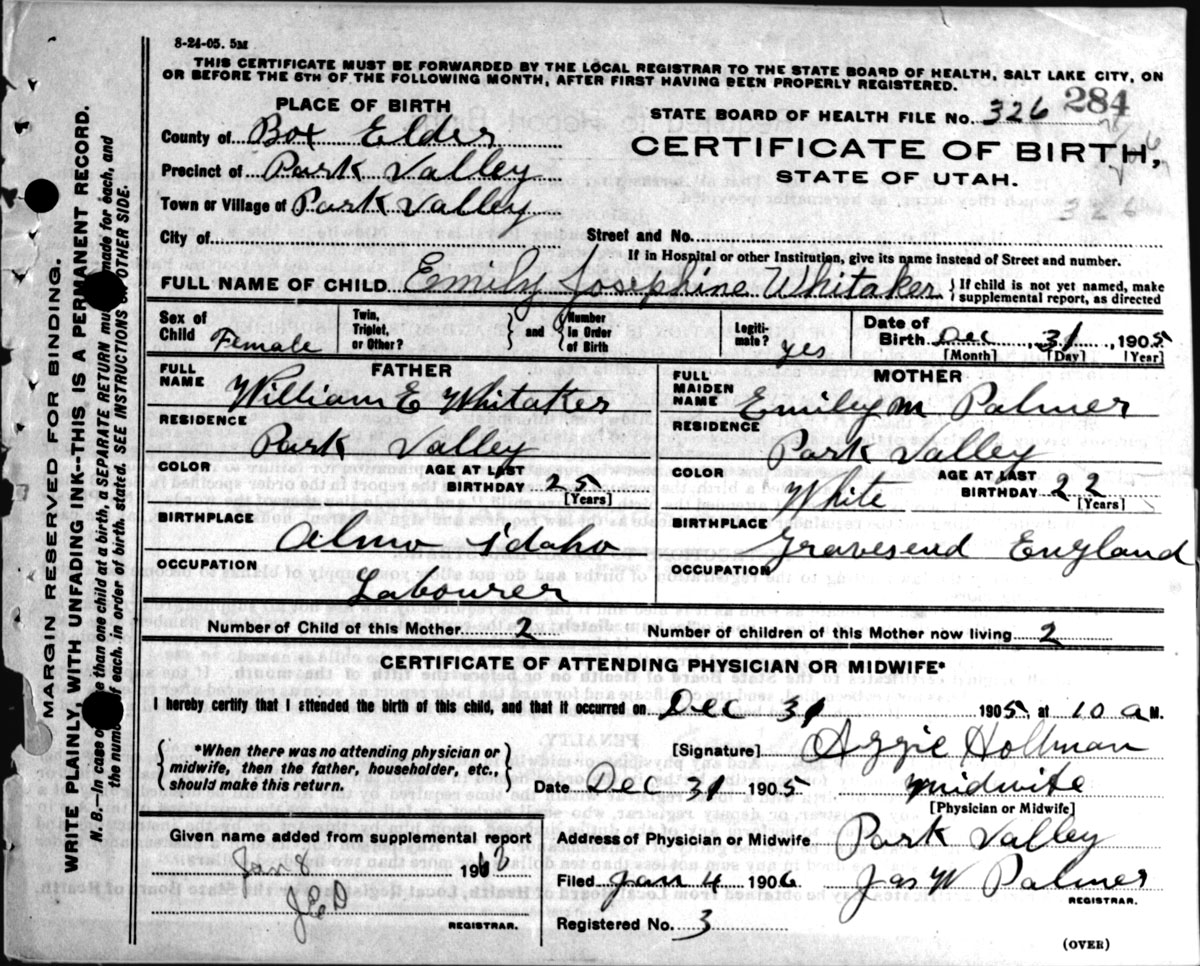 8-24-05. 5M
THIS CERTIFICATE MUST BE FORWARDED BY THE LOCAL REGISTRAR TO THE STATE BOARD OF HEALTH, SALT LAKE CITY, ON
OR BEFORE THE 5TH OF THE FOLLOWING MONTH, AFTER FIRST HAVING BEEN PROPERLY REGISTERED.
PLACE OF BIRTH
County of Box Elder
Precinct of Park Valley
Town or Village of Park Valley
City of
STATE BOARD OF HEALTH FILE No. 326 284
CERTIFICATE OF BIRTH,
STATE OF UTAH.
326
Street and No.
If in Hospital or other Institution, give its name instead of Street and number.
FULL NAME OF CHILD Emily Josephine Whitaker { If child is not yet named, make
supplemental report, as directed
Sex of Child Female
Twin, Triplet, or Other? } and { Number in Order of Birth
Legiti-mate? yes
Date of Birth Dec 31 1905
[Month] [Day] [Year]
FATHER
FULL NAME William E Whitaker
RESIDENCE
Park Valley
COLOR
AGE AT LAST BIRTHDAY 25
[Years]
BIRTHPLACE
Almo Idaho
OCCUPATION
Labourer
MOTHER
FULL MAIDEN NAME Emily M Palmer
RESIDENCE
Park Valley
COLOR
White
AGE AT LAST BIRTHDAY 22
[Years]
BIRTHPLACE
Gravesend England
OCCUPATION
Number of Child of this Mother 2
Number of children of this Mother now living 2
CERTIFICATE OF ATTENDING PHYSICIAN OR MIDWIFE*
I hereby certify that I attended the birth of this child, and that it occurred on Dec 31 1905, at 10 a M.
{ *When there was no attending physician or
midwife, then the father, householder, etc.,
should make this return. }
[Signature] Aggie Hollman
Date Dec 31 1905 midwife
[Physician or Midwife]
Given name added from supplemental report
Jan 8 1908
J.E.D
REGISTRAR.
Address of Physician or Midwife Park Valley
Filed Jan 4 1906 Jas W Palmer
REGISTRAR.
Registered No. 3
(OVER)
MARGIN RESERVED FOR BINDING.
WRITE PLAINLY, WITH UNFADING INK--THIS IS A PERMANENT RECORD.
N. B.--In case of more than one child at a birth, a SEPARATE RETURN must be made for each, and
the number of each, in order of birth, stated. SEE INSTRUCTIONS ON OTHER SIDE.